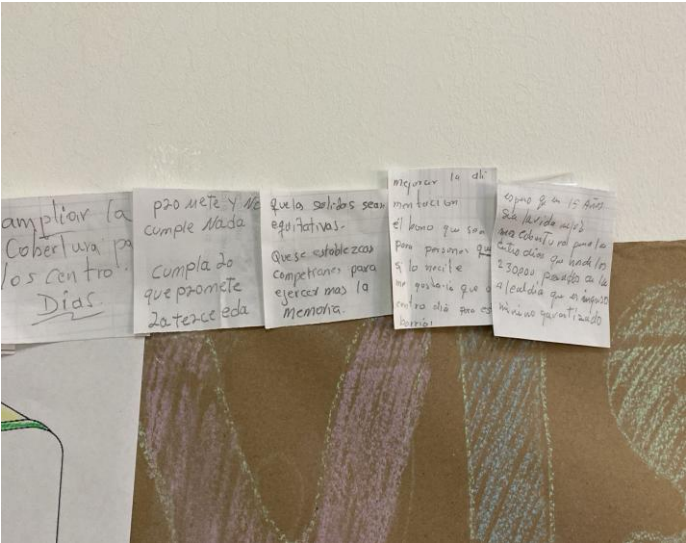 ampliar la
Cobertura pa
los centro
Dias.
promete y No
cumple Nada
cumpla lo
que promete
la terce eda
que la salidas sean
equitativas.
Que se establezcas
competiones para
ejercer mas la
memoria.
mejorar la ali
mentacion
el bono que sea
para personas que
si lo necite
me gustaria que
centro dia para es
barrio!
15 Años
sea la vida
mas cobertura para la
centro dias que
230000 pesados en la
alcaldia que es ingreso
minimo garantizado